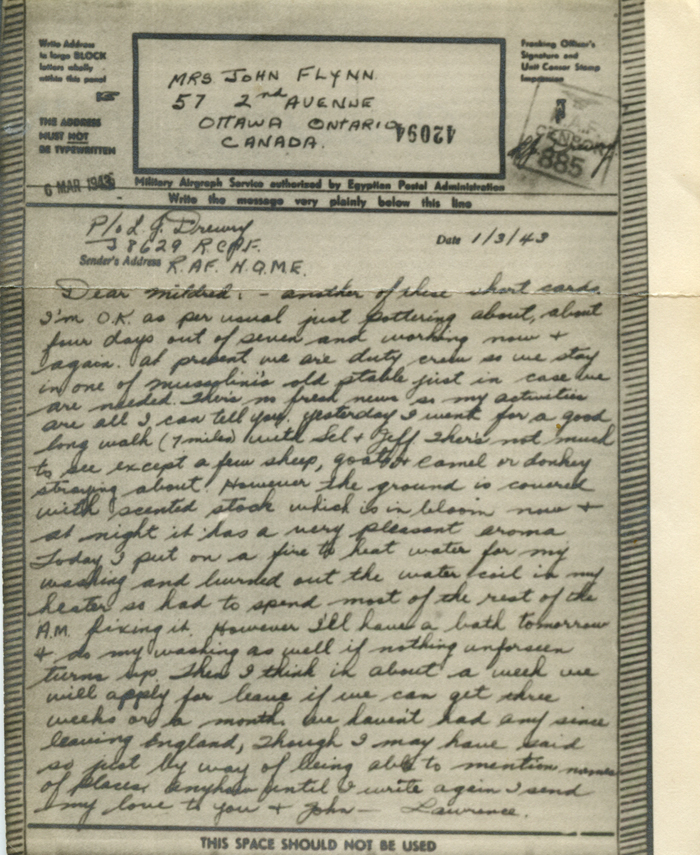 Write Address
in large BLOCK
letters wholly
within this panel
THE ADDRESS
MUST NOT
BE TYPEWRITTEN
6 MAR 1943
MRS. JOHN FLYNN
57 2nd AVENUE
OTTAWA ONTARIO
CANADA.
42094
Franking Officer's
Signature and
Unit Censor Stamp
Impression
CENSOR
885
Military Airgraph Service authorized by Egyptian Postal Administration
Write the message very plainly below this line
P/o L. J. Drewry
J 8629 R.C.A.F.
Sender's Address R.A.F. H.Q.M.E.
Date 1/3/43
Dear Mildred: - another of these short cards.
I'm O.K. as per usual just pottering about, about
four days out of seven and working now +
again. At present we are duty crew so we stay
in one of Mussolini's old stable just in case we
are needed. There's no fresh news so my activities
are all I can tell you. Yesterday I went for a good
long walk (7 miles) with Sel + Jeff There's not much
to see except a few sheep, goats + camel or donkey
straying about. However the ground is covered
with scented stock which is in bloom now +
at night it has a very pleasant aroma
Today I put on a fire to heat water for my
washing and burned out the water coil in my
heater so had to spend most of the rest of the
A.M. fixing it. However I'll have a bath tomorrow
+ do my washing as well if nothing unforseen
turns up. Then I think in about a week we
will apply for leave if we can get three
weeks or a month. We haven't had any since
leaving England, though I may have said
so just by way of being able to mention names
of places. Anyhow until I write again I send
my love to you + John - Lawrence.
THIS SPACE SHOULD NOT BE USED